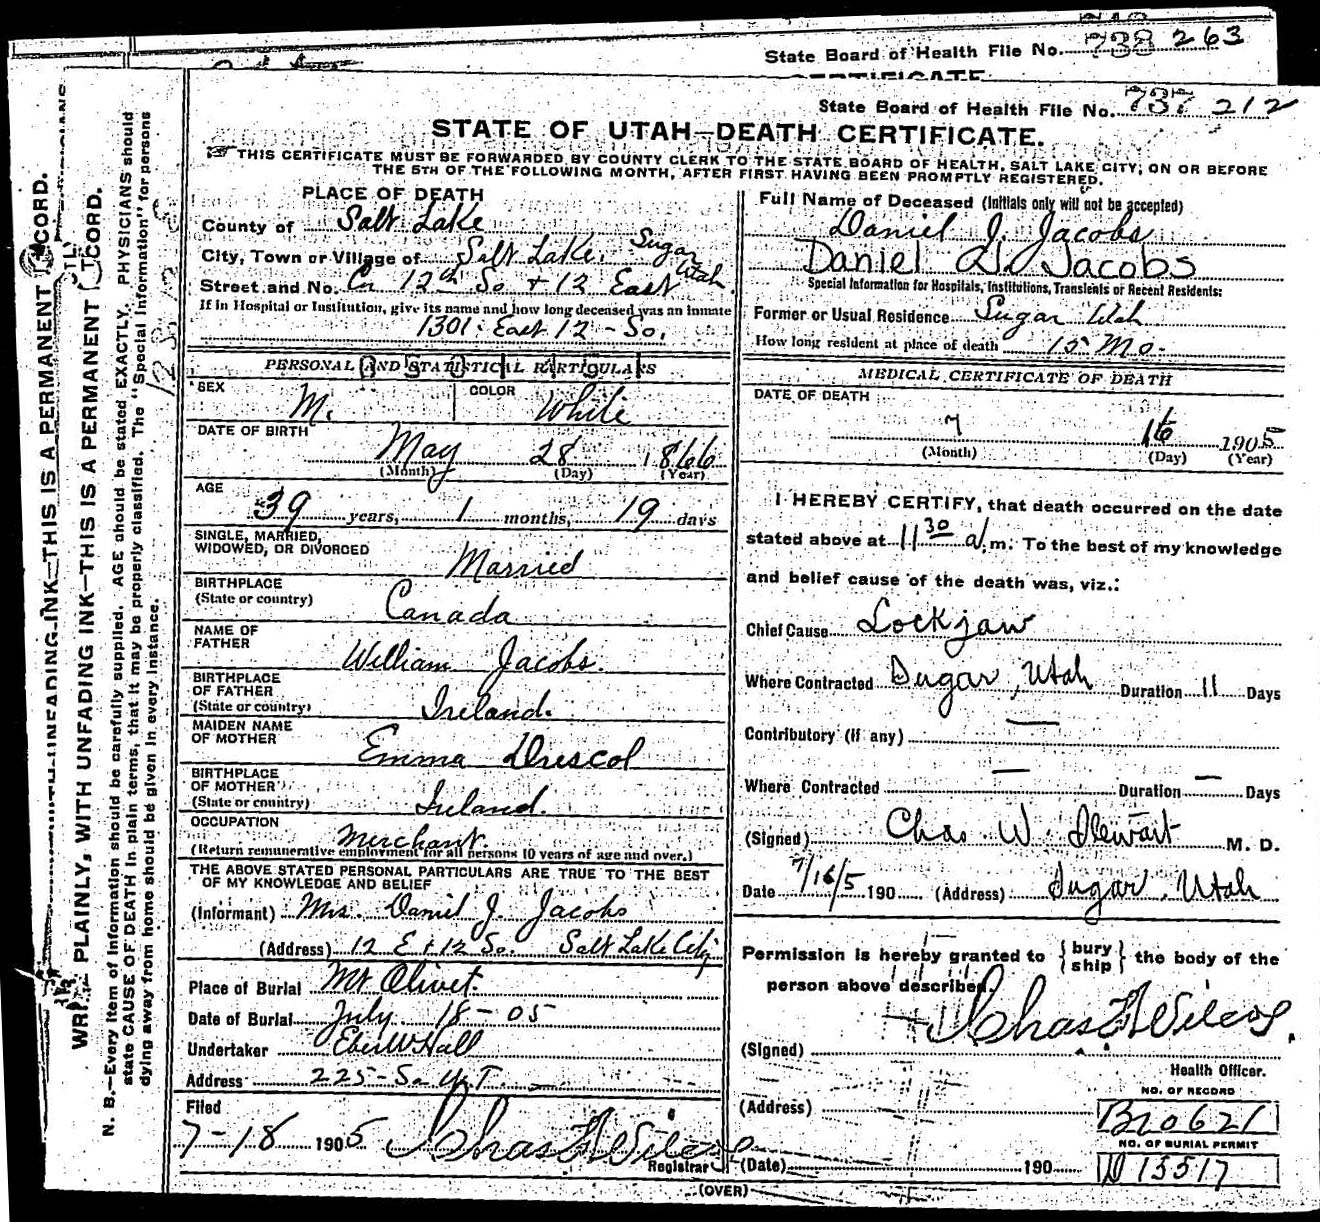 State Board of Health File No. 738 263
CERTIFICATE
State Board of Health File No. 737 212
STATE OF UTAH—DEATH CERTIFICATE.
THIS CERTIFICATE MUST BE FORWARDED BY COUNTY CLERK TO THE STATE BOARD OF HEALTH, SALT LAKE CITY, ON OR BEFORE
THE 5TH OF THE FOLLOWING MONTH, AFTER FIRST HAVING BEEN PROMPTLY REGISTERED.
PLACE OF DEATH
County of Salt Lake
City, Town or Village of Salt Lake, Sugar Utah
Street and No. Cr 12th So + 12 East
If in Hospital or Institution, give its name and how long deceased was an inmate
1301. East 12 - So.
PERSONAL AND STATISTICAL PARTICULARS
SEX M. COLOR White
DATE OF BIRTH May 28 1866
(Month) (Day) (Year)
AGE 39 years, 1 months, 19 days
SINGLE, MARRIED,
WIDOWED, OR DIVORCED Married
BIRTHPLACE
(State or country) Canada
NAME OF
FATHER William Jacobs.
BIRTHPLACE
OF FATHER
(State or country) Ireland.
MAIDEN NAME
OF MOTHER Emma Driscol
BIRTHPLACE
OF MOTHER
(State or country) Ireland.
OCCUPATION Merchant.
(Return remunerative employment for all persons 10 years of age and over.)
THE ABOVE STATED PERSONAL PARTICULARS ARE TRUE TO THE BEST
OF MY KNOWLEDGE AND BELIEF
(Informant) Mrs. Daniel J. Jacobs
(Address) 12 E + 12 So. Salt Lake City
Place of Burial Mt Olivet.
Date of Burial July 18 - 05
Undertaker Eber W Hall
Address 225 - So. W.T.
Filed
7-18 1905 Chas F Wilcox
Registrar
Full Name of Deceased (Initials only will not be accepted)
Daniel J. Jacobs
Daniel J. Jacobs
Special Information for Hospitals, Institutions, Transients or Recent Residents:
Former or Usual Residence Sugar Utah
How long resident at place of death 15 Mo.
MEDICAL CERTIFICATE OF DEATH
DATE OF DEATH
7 16 1905
(Month) (Day) (Year)
I HEREBY CERTIFY, that death occurred on the date
stated above at 11 30 a.m. To the best of my knowledge
and belief cause of the death was, viz.:
Chief Cause Lockjaw
Where Contracted Sugar, Utah Duration 11 Days
Contributory (if any) —
Where Contracted — Duration — Days
(Signed) Chas W. Stewart M. D.
Date 7/16/5 190 (Address) Sugar, Utah
Permission is hereby granted to {bury ship} the body of the
person above described.
(Signed) Chas F Wilcox,
Health Officer.
(Address)
NO. OF RECORD
B10621
NO. OF BURIAL PERMIT
D 13517
(Date) 190
(OVER)
CORD.
WRITE PLAINLY, WITH UNFADING INK—THIS IS A PERMANENT RECORD.
N. B.—Every item of information should be carefully supplied. AGE should be stated EXACTLY. PHYSICIANS should
state CAUSE OF DEATH in plain terms, that it may be properly classified. The "Special Information" for persons
dying away from home should be given in every instance.